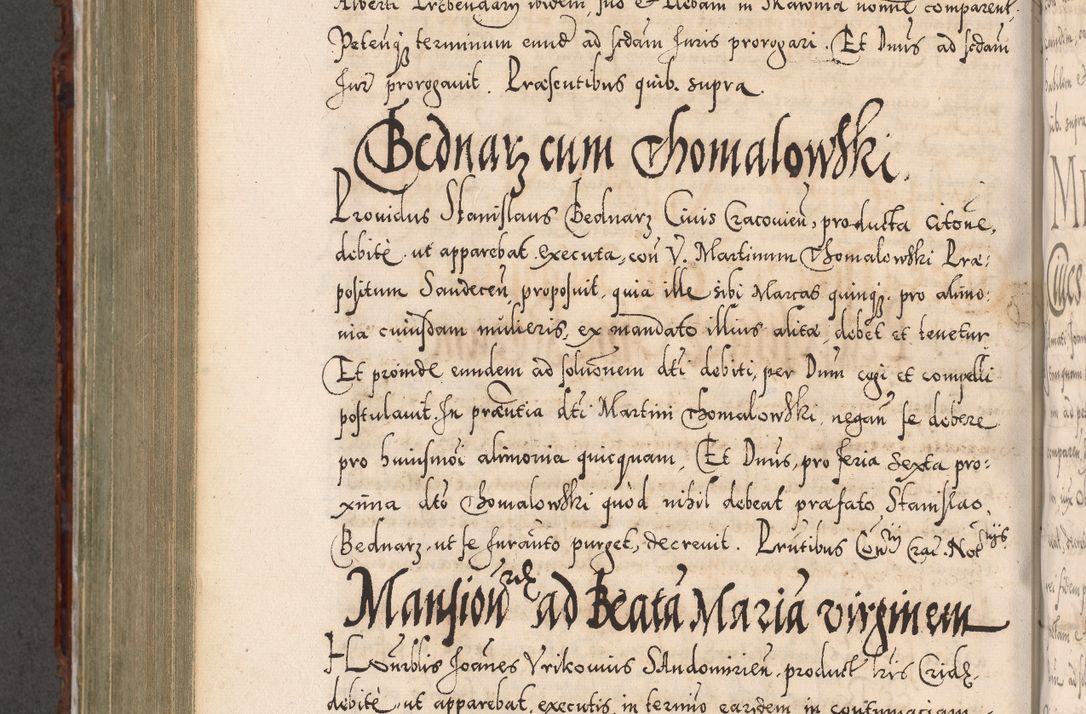 Alberti Præbendarij ibidem, suo et Plebani in Skawina nomine comparent.
Petentq; terminum eund ad scdam Juris prorogari. Et Dnus ad scdam
Jur prorogavit. Præsentibus quib. supra.
Bednarz cum Thomalowski.
Providus Stanislaus Bednarz Civis Cracovien, producta citone,
debite ut apparebat executa, con V. Martinum Thomalowski Præ:
positum Sandecen proposuit, quia ille sibi Marcas quinq; pro alimo:
nia cuiusdam mulieris, ex mandato illius alitæ debet et tenetur
Et proinde eundem ad soluonem dti debiti, per Dnum cogi et compelli
postulavit. In præntia dti Martini Thomalowski, negan se debere
pro huiusmoi alimonia quicquam, Et Dnus, pro feria sexta pro:
xima dto Thomalowski quod nihil debeat præfato Stanislao
Bednarz, ut se Juranto purget, decrevit. Prntibus Conrij Crac. Notrijs
Mansion ad Beatā Mariā virginem
Honrblis Joannes Vrikovius SAndomirien, product lris Cridæ,
debite ut apparebat, executis, in termino earudem, in contumaciam